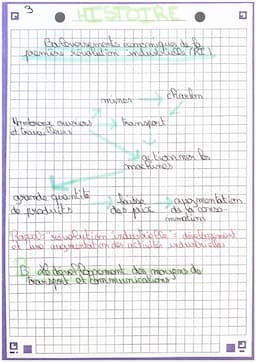 3
HISTOIRE
Bouleversements économiques de la
première révolution industrielle (RI)
mines → charbon
Nombreux ouvriers
et travailleurs
→ transport
actionner les
machines
grande quantité
de produits
→ baisse
des prix
→ augmentation
de la conso-
mmation
Rappel: révolution industrielle = développement
et une augmentation des activités industrielles
B Le développement des moyens de
transport et communications